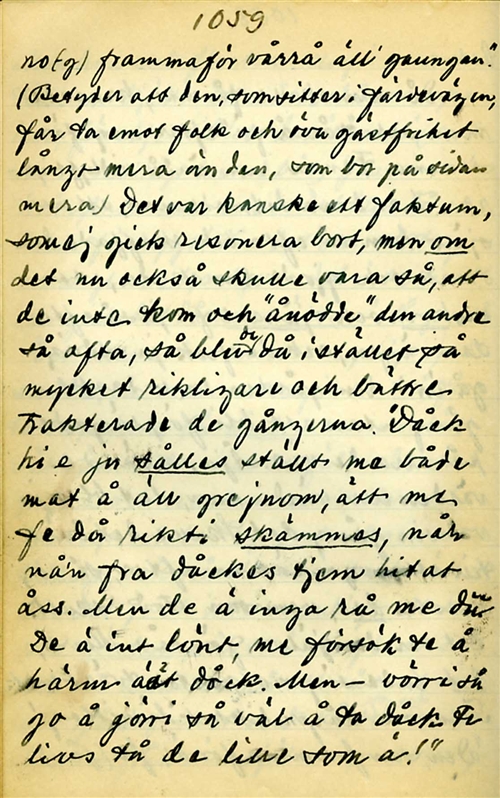 1059
no(g) frammaför vårrå äll' gaungan."
(Betyder att den, som sitter i färdevägen,
får ta emot folk och öva gästfrihet
långt mera än den, som bor på sidan
mera) Det var kanske ett faktum,
som ej gick resonera bort, men om
det nu också skulle vara så, att
de inte kom och "ånödde" den andre
så ofta, så blev de då i stället så
mycket rikligare och bättre
trakterade de gångerna. "Dåck
hi e ju sålles ställt me både
mat å äll grejnom, ätt me
fe då rikti skämmas, når
nå'n fra dåckes tjem hit at
åss. Men de ä inga rå me där
De ä int lönt, me försök te å
härm ätt dåck. Men – vörri så
go å görri så väl å ta dåck te
livs tå de lille som ä!"